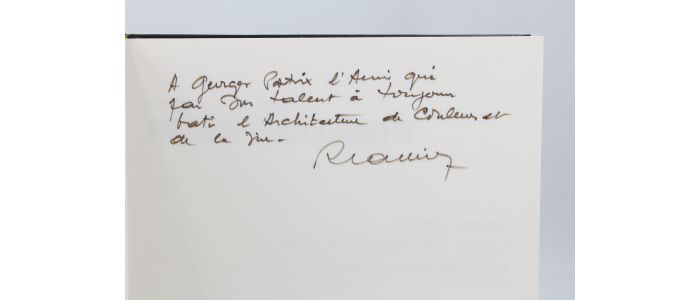 A Georges Patrix l'Ami qui
par son talent à toujours
bati l'Architecture de Couleurs et
de la Vie.